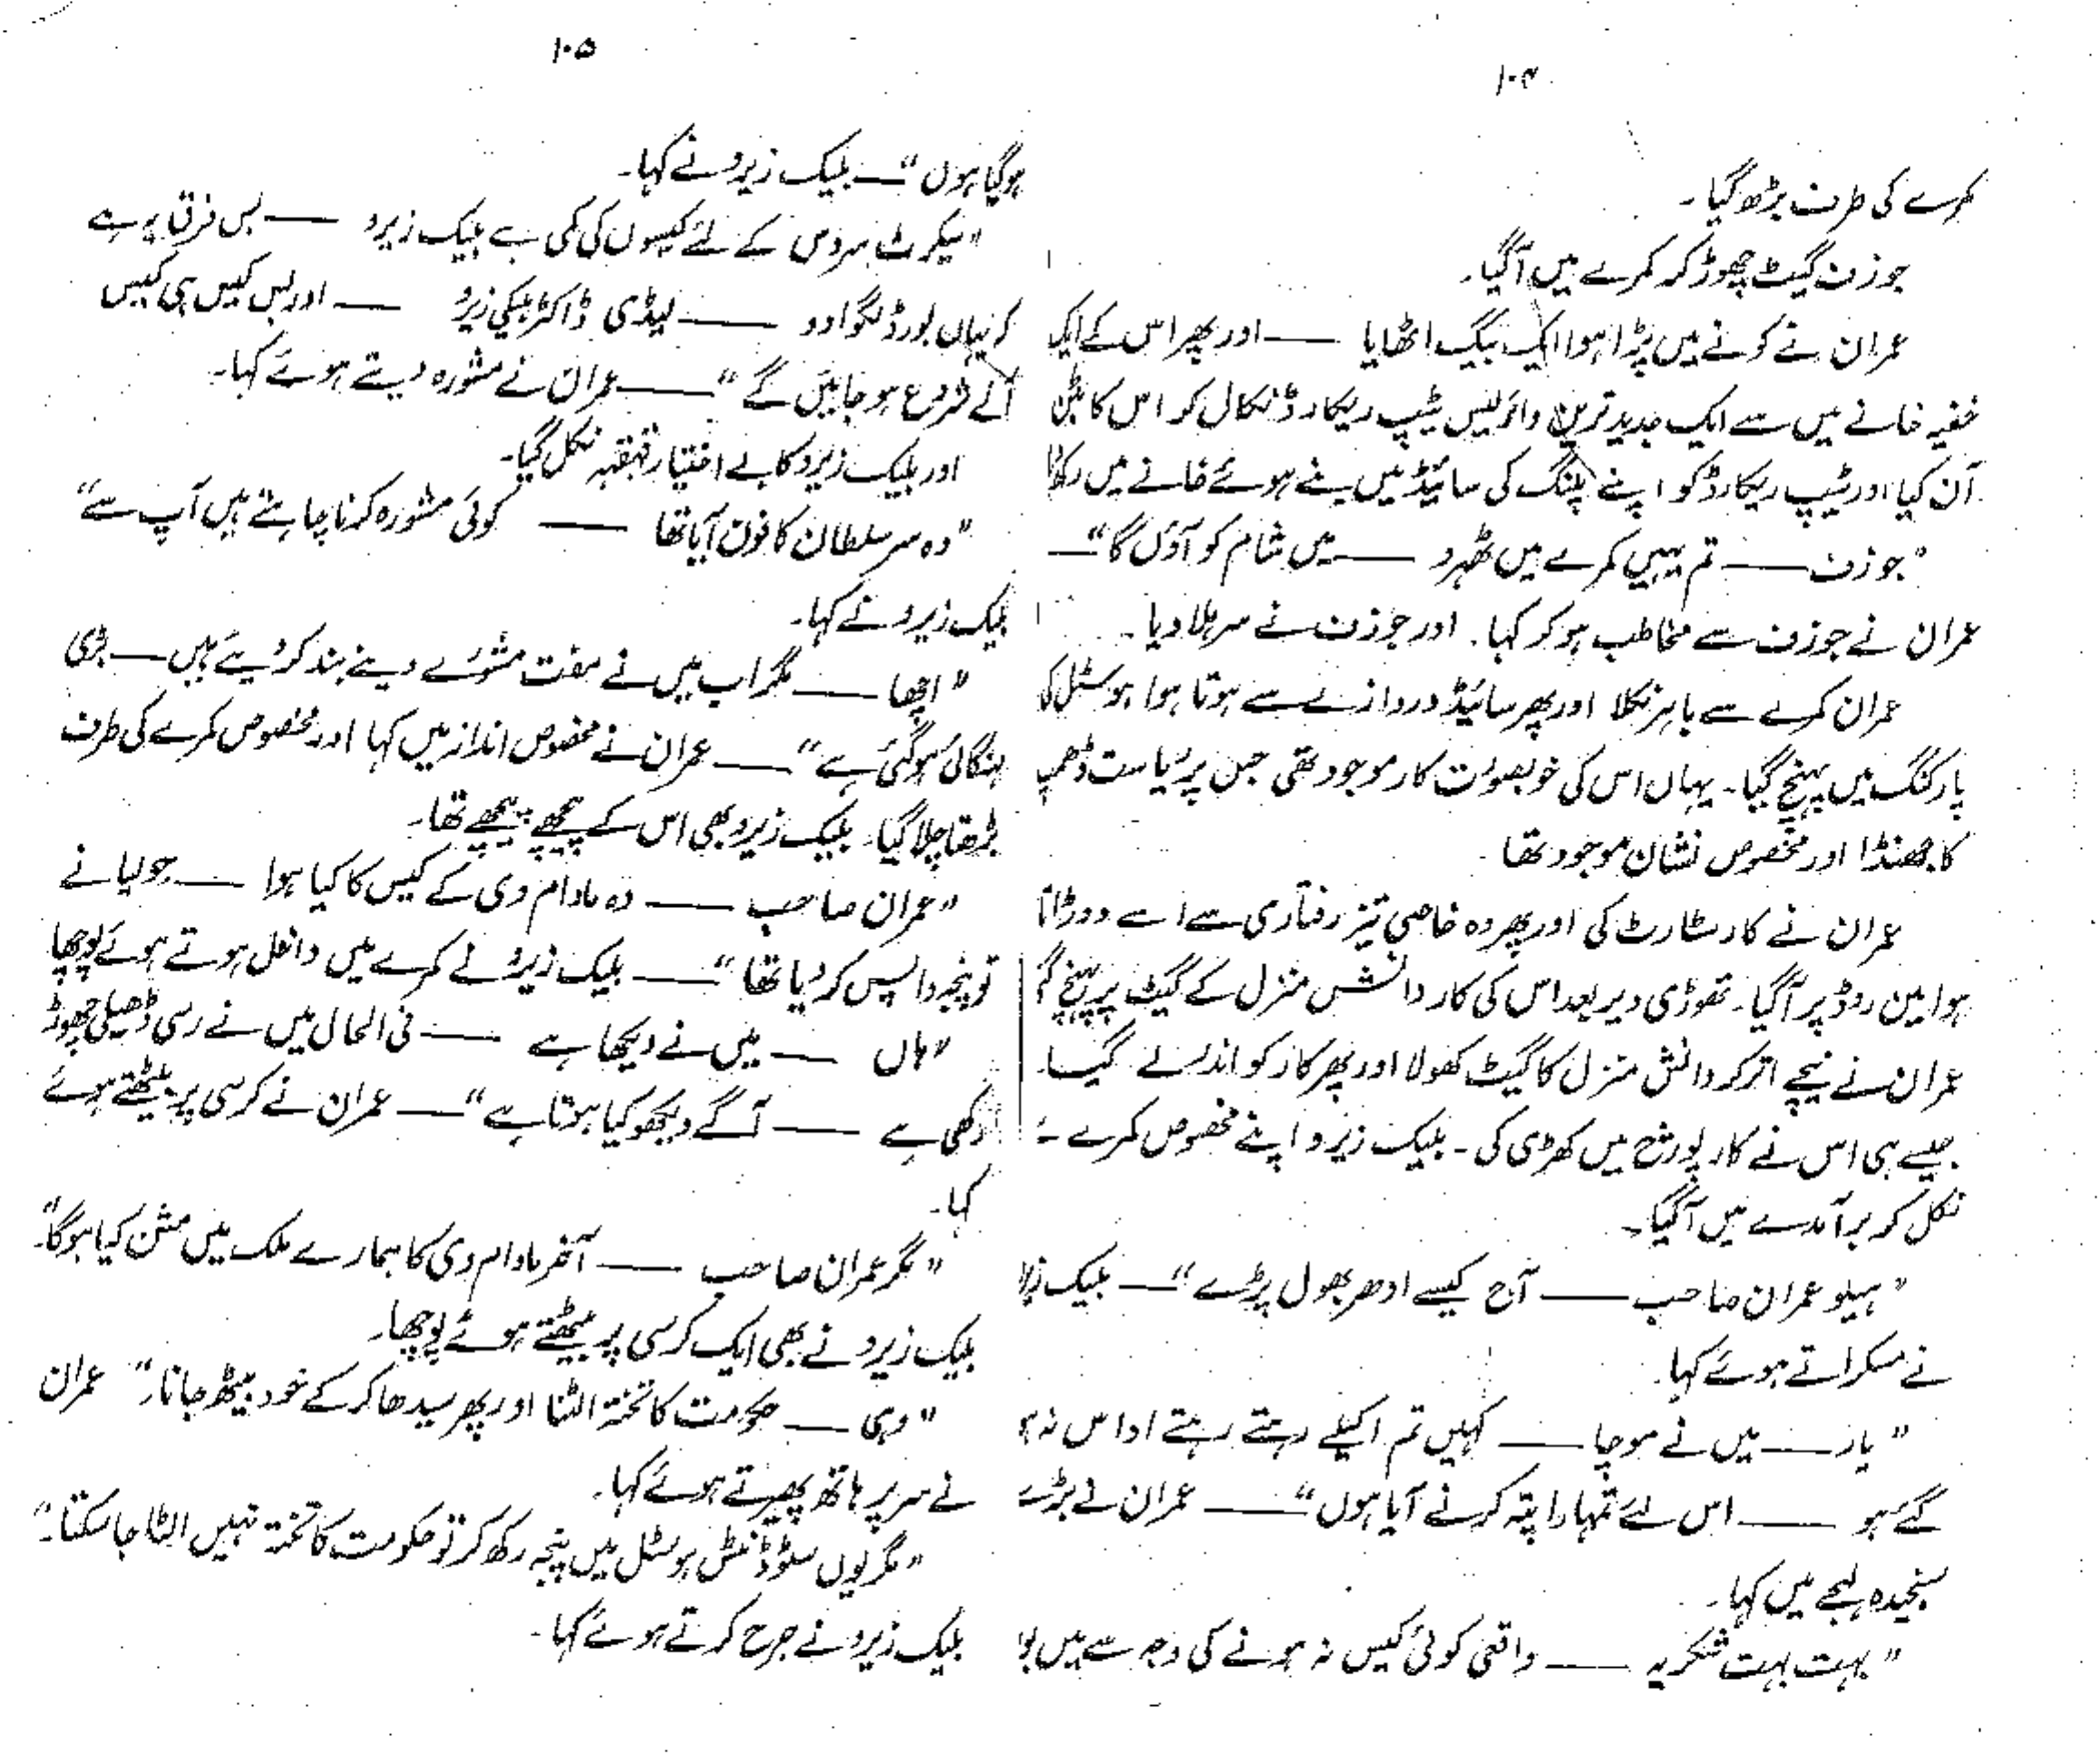 ۱۰۴
کمرے کی طرف بڑھ گیا۔
جوزف گیٹ چھوڑ کر کمرے میں آگیا۔
عمران نے کونے میں پڑا ہوا ایک بیگ اٹھایا —— اور پھر اس کے ایک
خفیہ خانے میں سے ایک جدید ترین وائرلیس ٹیپ ریکارڈ نکال کر اس کا بٹن
آن کیا اور ٹیپ ریکارڈ کو اپنے پلنگ کی سائیڈ میں بنے ہوئے خانے میں رکھا
"جوزف —— تم یہیں کمرے میں ٹھہرو —— میں شام کو آؤں گا" ——
عمران نے جوزف سے مخاطب ہو کر کہا۔ اور جوزف نے سر ہلا دیا۔
عمران کمرے سے باہر نکلا اور پھر سائیڈ دروازے سے ہوتا ہوا ہوسٹل کی
پارکنگ میں پہنچ گیا۔ یہاں اس کی خوبصورت کار موجود تھی جس پر ریاست ڈھمپ
کا جھنڈا اور مخصوص نشان موجود تھا۔
عمران نے کار سٹارٹ کی اور پھر وہ خاصی تیز رفتاری سے اسے دوڑاتا
ہوا مین روڈ پر آگیا۔ تھوڑی دیر بعد اس کی کار دانش منزل کے گیٹ پر پہنچ گئی
عمران نے نیچے اتر کر دانش منزل کا گیٹ کھولا اور پھر کار کو اندر لے گیا۔
جیسے ہی اس نے کار پورچ میں کھڑی کی۔ بلیک زیرو اپنے مخصوص کمرے سے
نکل کر برآمدے میں آگیا۔
"ہیلو عمران صاحب —— آج کیسے ادھر بھول پڑے" —— بلیک زیرو
نے مسکراتے ہوئے کہا۔
"یار —— میں نے سوچا —— کہیں تم اکیلے رہتے رہتے اداس نہ ہو
گئے ہو —— اس لئے تمہارا پتہ کرنے آیا ہوں" —— عمران نے بڑے
سنجیدہ لہجے میں کہا۔
"بہت بہت شکریہ —— واقعی کوئی کیس نہ ہونے کی وجہ سے میں
۱۰۵
ہوگیا ہوں" —— بلیک زیرو نے کہا۔
"سیکرٹ سروس کے لئے کیسوں کی کمی ہے بلیک زیرو —— بس فرق یہ ہے
کہ یہاں بورڈ لگوا دو —— لیڈی ڈاکٹر بلیکی زیرو —— اور بس کیس ہی کیس
آنے شروع ہو جائیں گے" —— عمران نے مشورہ دیتے ہوئے کہا۔
اور بلیک زیرو کا بے اختیار قہقہہ نکل گیا۔
"وہ سر سلطان کا فون آیا تھا —— کوئی مشورہ کرنا چاہتے ہیں آپ سے"
بلیک زیرو نے کہا۔
"اچھا —— مگر اب میں نے مفت مشورے دینے بند کر دیئے ہیں —— بڑی
مہنگائی ہوگئی ہے" —— عمران نے مخصوص انداز میں کہا اور مخصوص کمرے کی طرف
بڑھتا چلا گیا۔ بلیک زیرو بھی اس کے پیچھے پیچھے تھا۔
"عمران صاحب —— وہ مادام وی کے کیس کا کیا ہوا —— جولیا نے
تو پنجہ واپس کر دیا تھا" —— بلیک زیرو نے کمرے میں داخل ہوتے ہوئے پوچھا
"ہاں —— میں نے دیکھا ہے —— فی الحال میں نے رسی ڈھیلی چھوڑ
رکھی ہے —— آگے دیکھو کیا ہوتا ہے" —— عمران نے کرسی پر بیٹھتے ہوئے
کہا۔
"مگر عمران صاحب —— آخر مادام وی کا ہمارے ملک میں مشن کیا ہوگا"
بلیک زیرو نے بھی ایک کرسی پر بیٹھتے ہوئے پوچھا۔
"وہی —— حکومت کا تختہ الٹنا اور پھر سیدھا کر کے خود بیٹھ جانا۔" عمران
نے سر پر ہاتھ پھیرتے ہوئے کہا۔
"مگر یوں سٹوڈنٹس ہوسٹل میں پنجہ رکھ کر تو حکومت کا تختہ نہیں الٹا جا سکتا۔"
بلیک زیرو نے جرح کرتے ہوئے کہا۔